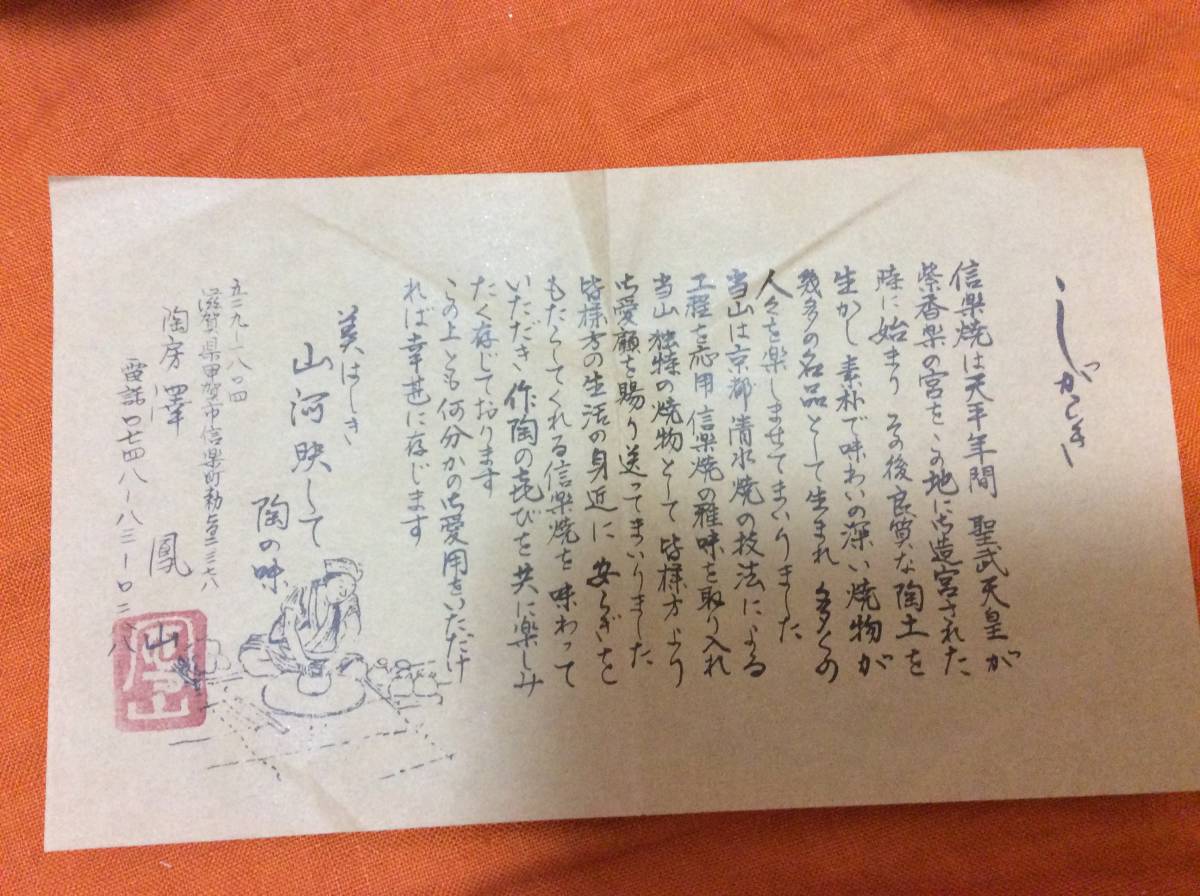 しがらき
信楽焼は天平年間 聖武天皇が
紫香楽の宮をこの地に御造宮された
時に始まり その後良質な陶土を
生かし 素朴で味わいの深い焼物が
幾多の名品として生まれ 多くの
人々を楽しませてまいりました
当山は京都清水焼の技法による
工程を応用 信楽焼の雅味を取り入れ
当山独特の焼物として 皆様方より
御愛顧を賜り送ってまいりました
皆様方の生活の身近に 安らぎを
もたらしてくれる信楽焼を 味わって
いただき 作陶の喜びを共に楽しみ
たく存じております
この上とも何分かの御愛用をいただけ
れば幸甚に存じます
美はしき
山河映して
陶の味
五二九ー一八〇四
滋賀県甲賀市信楽町勅旨二三六八
陶房 澤 鳳山
電話〇七四八ー八三ー〇二六八
鳳山